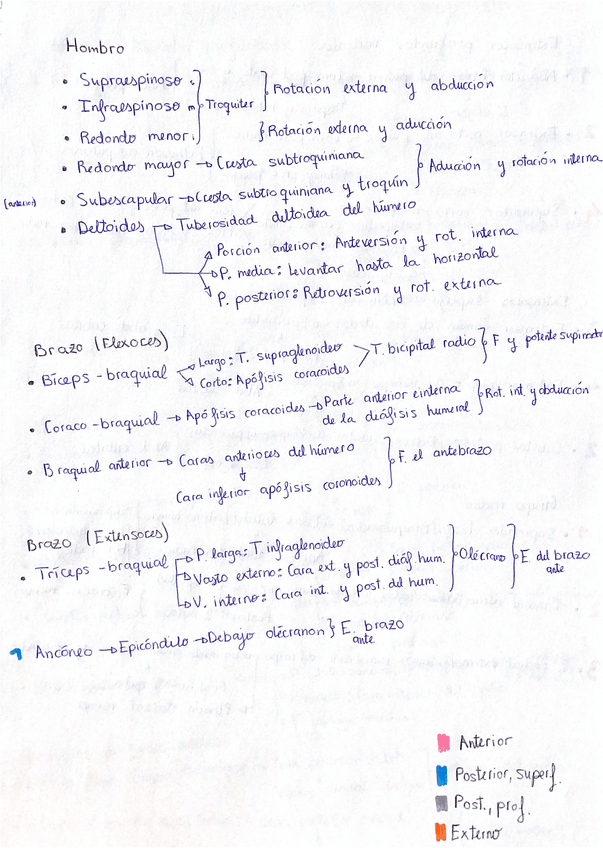 Hombro
• Supraespinoso
• Infraespinoso } Troquiter } Rotación externa y abducción
• Redondo menor } Rotación externa y aducción
• Redondo mayor → Cresta subtroquiniana
(anterior) • Subescapular → Cresta subtroquiniana y troquín } Aducción y rotación interna
• Deltoides → Tuberosidad deltoidea del húmero
Porción anterior: Anteversión y rot. interna
P. media: Levantar hasta la horizontal
P. posterior: Retroversión y rot. externa
Brazo (Flexores)
• Bíceps-braquial
Largo: T. supraglenoideo
Corto: Apófisis coracoides
T. bicipital radio } F y potente supinador
• Coraco-braquial → Apófisis coracoides → Parte anterior e interna
de la diáfisis humeral } Rot. int. y abducción
• Braquial anterior → Caras anteriores del húmero
↓
Cara inferior apófisis coronoides } F. el antebrazo
Brazo (Extensores)
• Tríceps-braquial
P. larga: T. infraglenoideo
Vasto externo: Cara ext. y post. diáf. hum.
V. interno: Cara int. y post. del hum.
} Olécrano } E. del brazo
ante
Ancóneo → Epicóndilo → Debajo olécranon } E. brazo
ante
Anterior
Posterior, superf.
Post., prof.
Externo